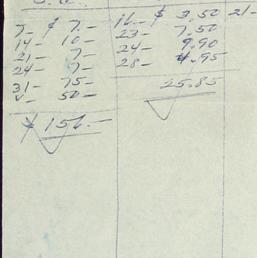 7- $ 7.-
14- 10-
21- 7-
24- 7-
31- 75-
50-
$ 156.-
16- $ 3.50
23- 7.50
24- 9.90
28- 4.95
25.85
21-